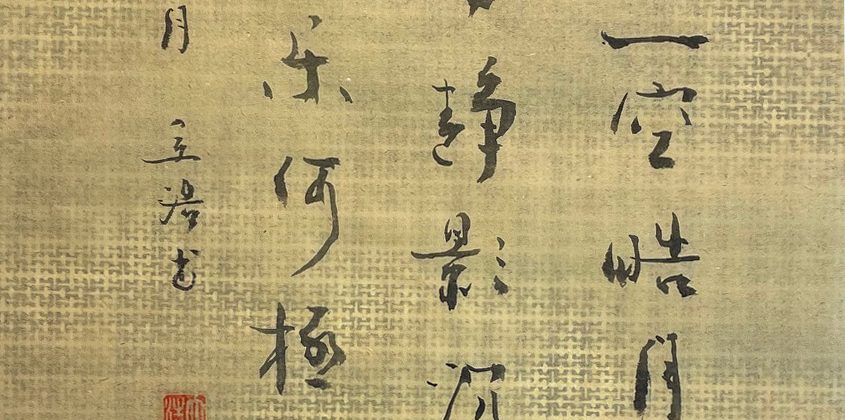 一空皓月
静影沉
乐何极
月 立浩书